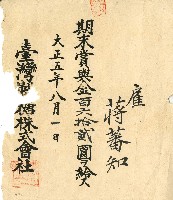 雇
蔣蕃知
期末賞與金百六拾貳圓ヲ給ス
大正五年八月一日
臺灣製糖株式會社